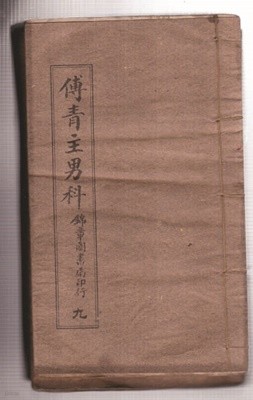 傅青主男科 錦章圖書局印行 九